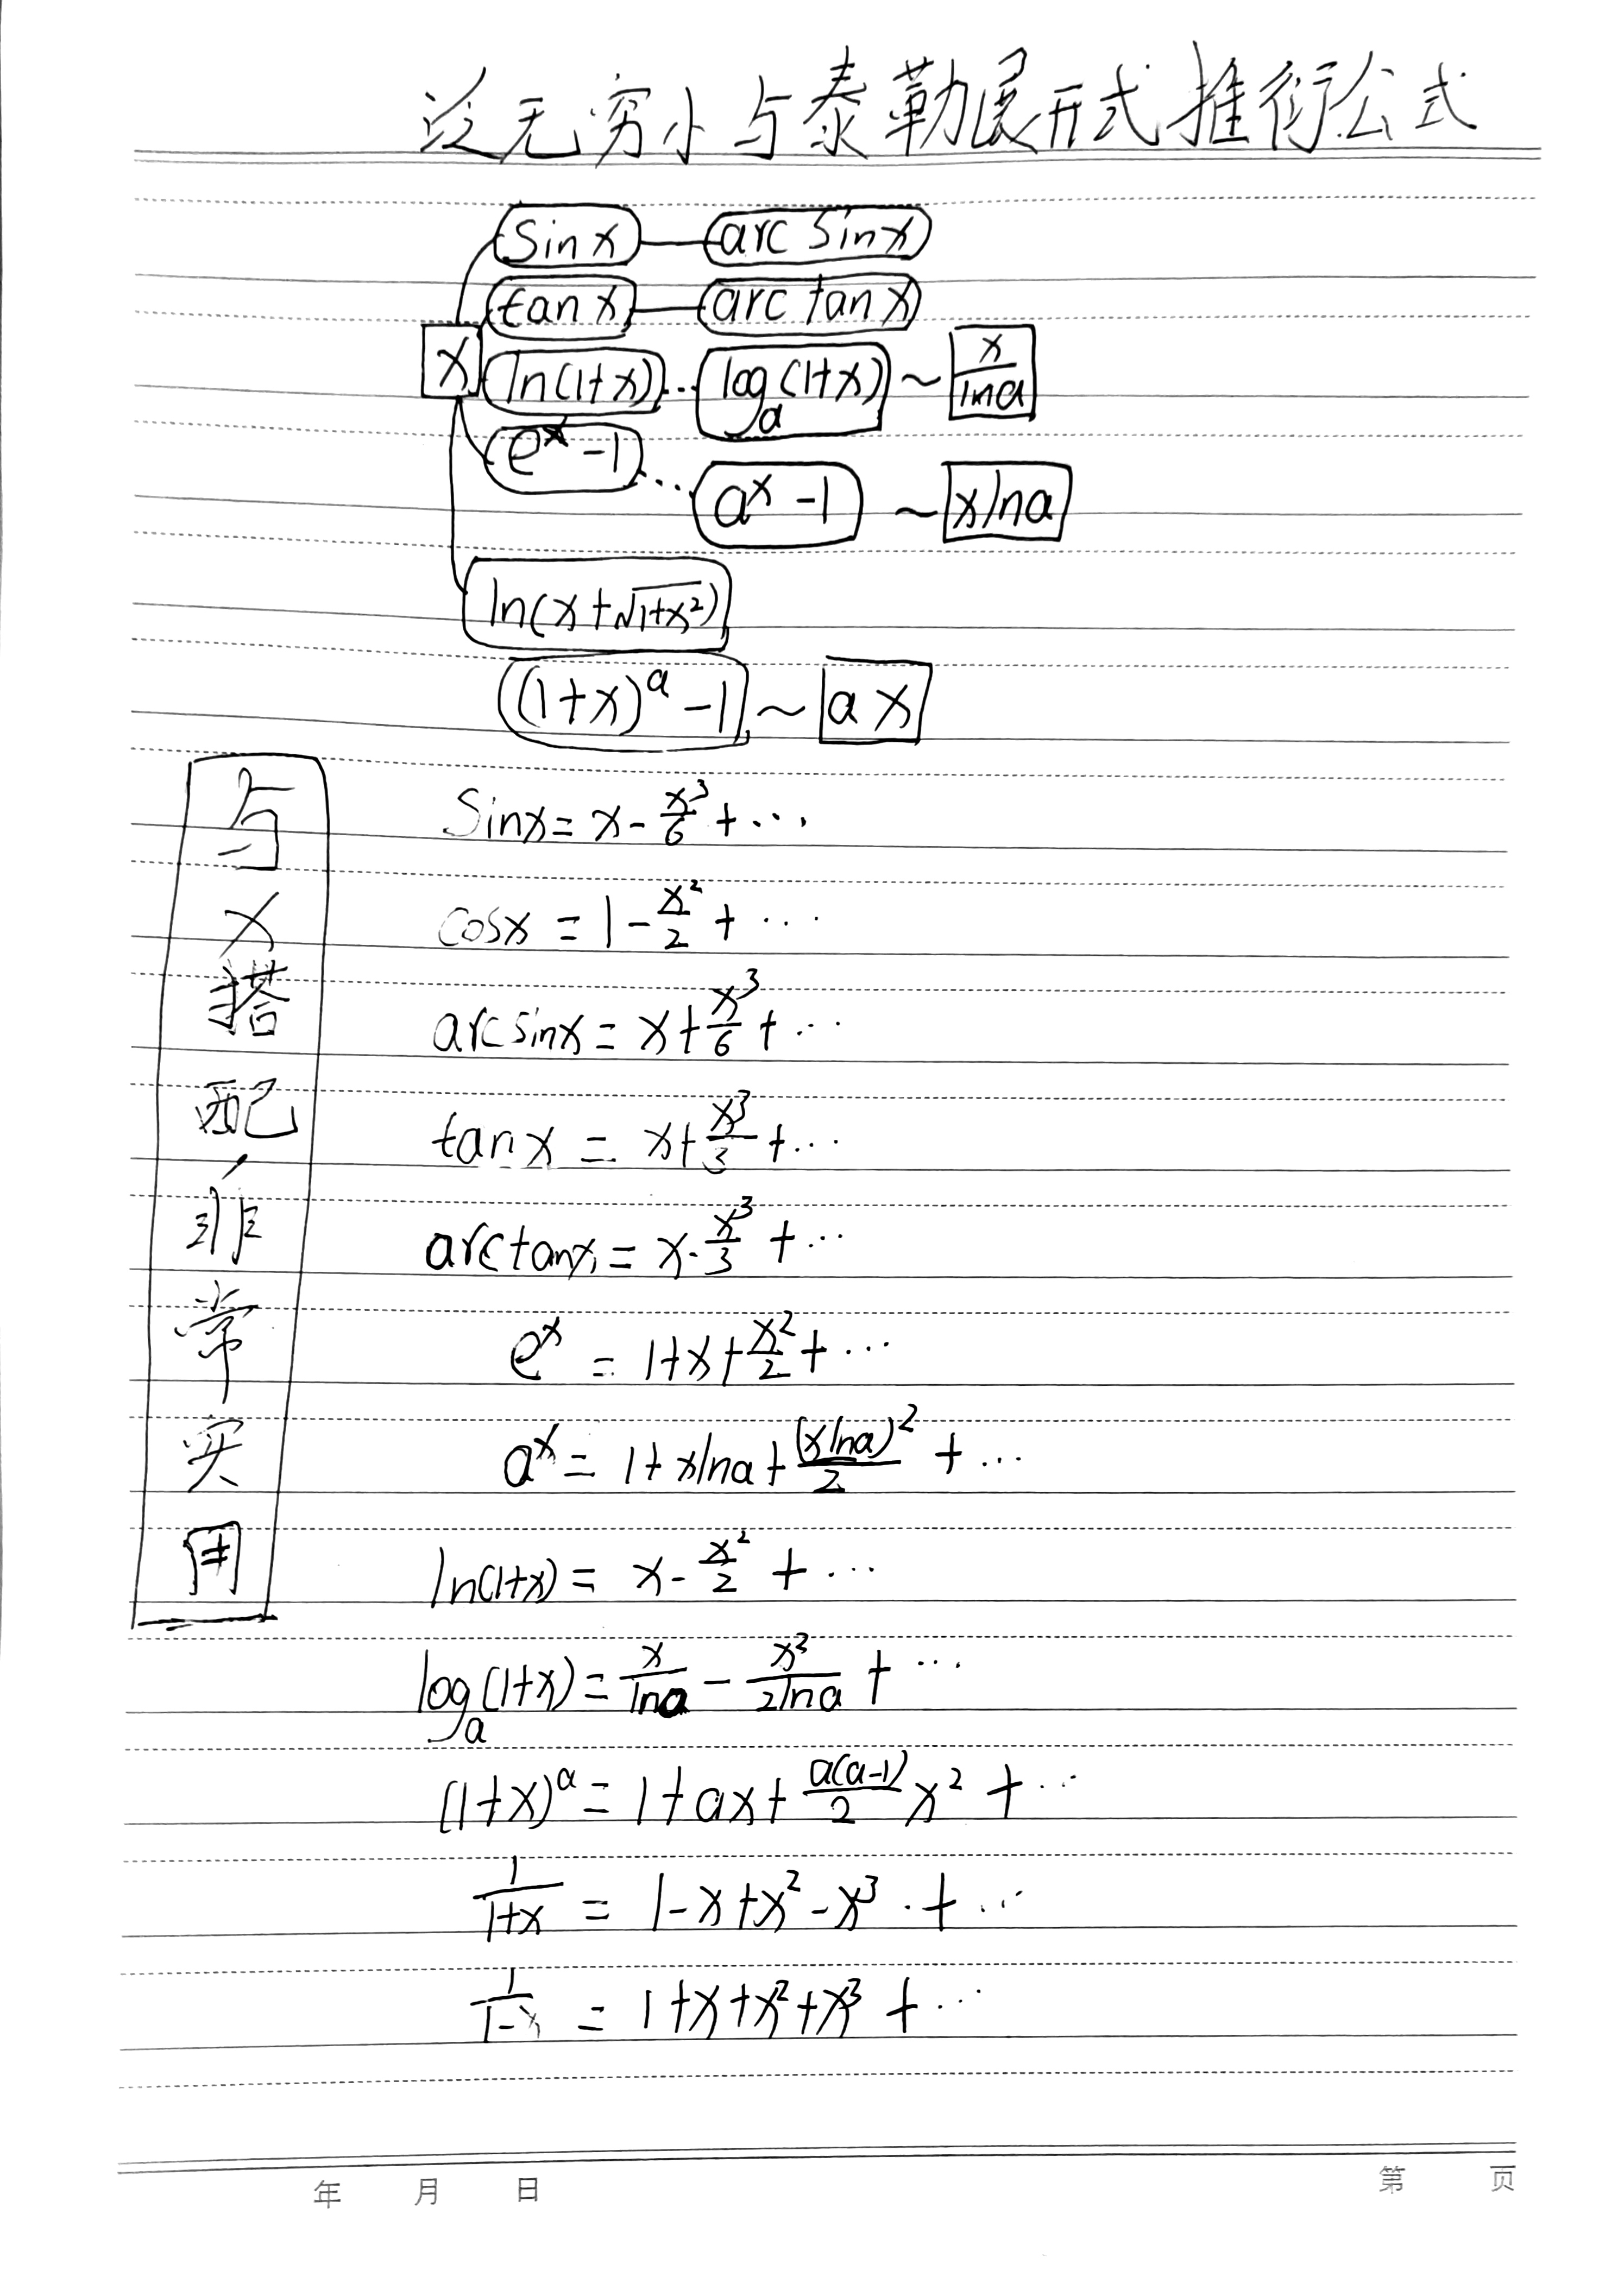 论无穷小与泰勒展开式推衍公式
sinx arcsinx
tanx arctanx
x ln(1+x) ... log_a(1+x) ~ x/lna
e^x-1 ... a^x-1 ~ xlna
ln(x+√(1+x²))
(1+x)^a-1 ~ ax
与x搭配非常实用
sinx = x - x³/6 + ...
cosx = 1 - x²/2 + ...
arcsinx = x + x³/6 + ...
tanx = x + x³/3 + ...
arctanx = x - x³/3 + ...
e^x = 1+x+x²/2+ ...
a^x = 1+xlna+(xlna)²/2 + ...
ln(1+x) = x - x²/2 + ...
log_a(1+x) = x/lna - x²/2lna + ...
(1+x)^a = 1+ax+a(a-1)/2 x² + ...
1/(1+x) = 1-x+x²-x³ + ...
1/(1-x) = 1+x+x²+x³ + ...
年 月 日 第 页